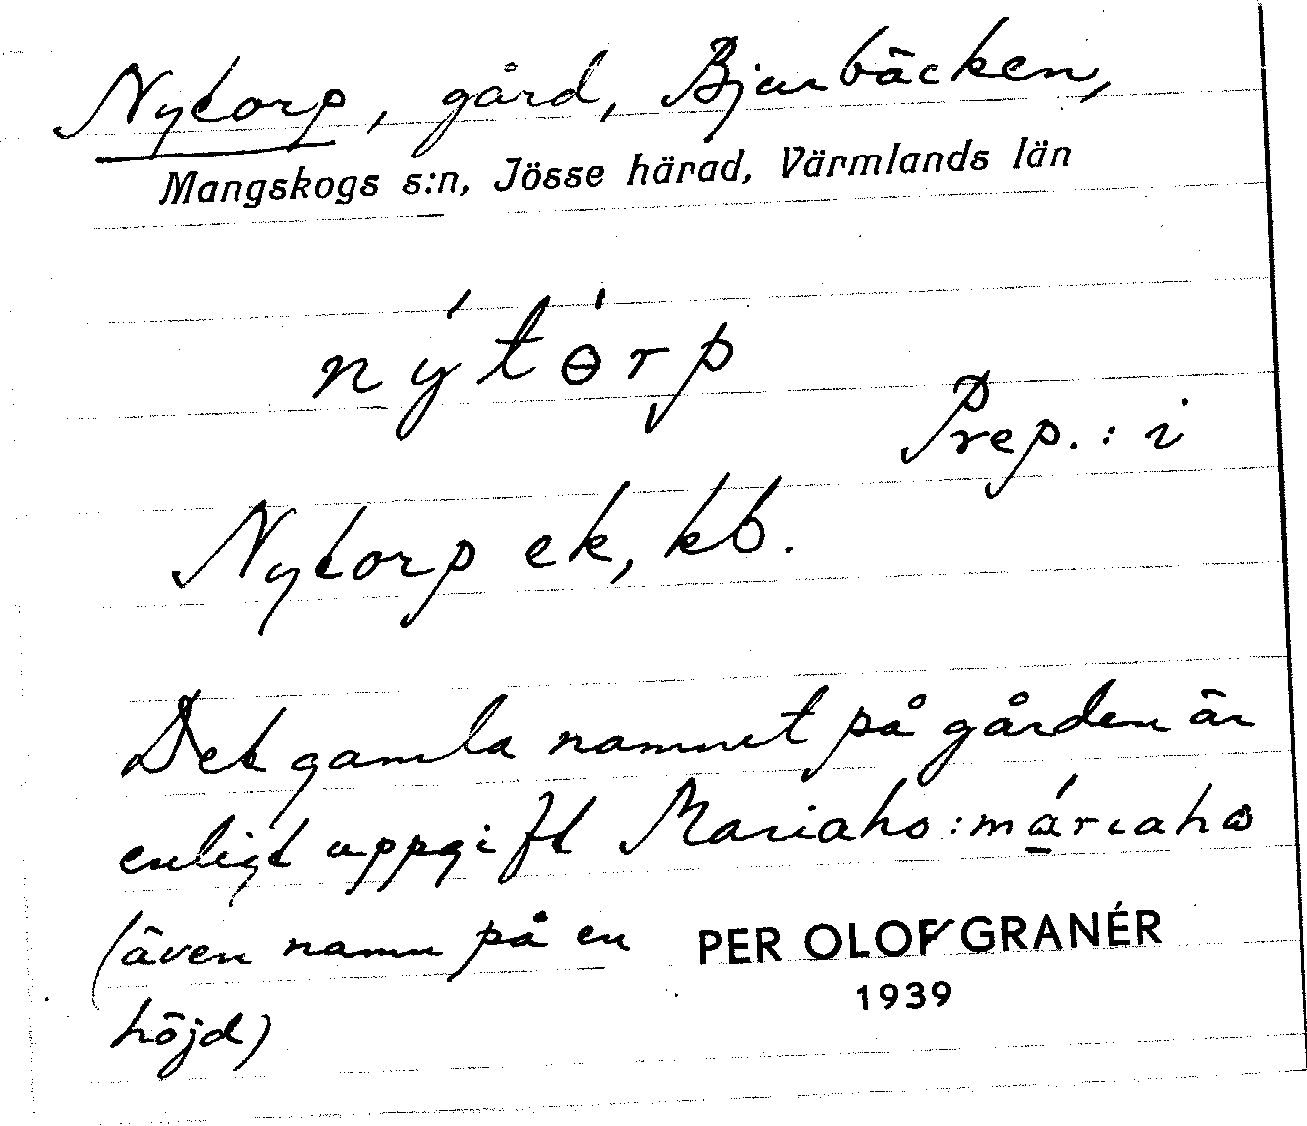 Nytorp, gård, Bjurbäcken,
Mangskogs s:n, Jösse härad, Värmlands län
nýtɵ́rp
Prep.: i
Nytorp ek, kb.
Det gamla namnet på gården är
enligt uppgift Mariaho: máriahɷ
(även namn på en
höjd)
PER OLOF GRANÉR
1939